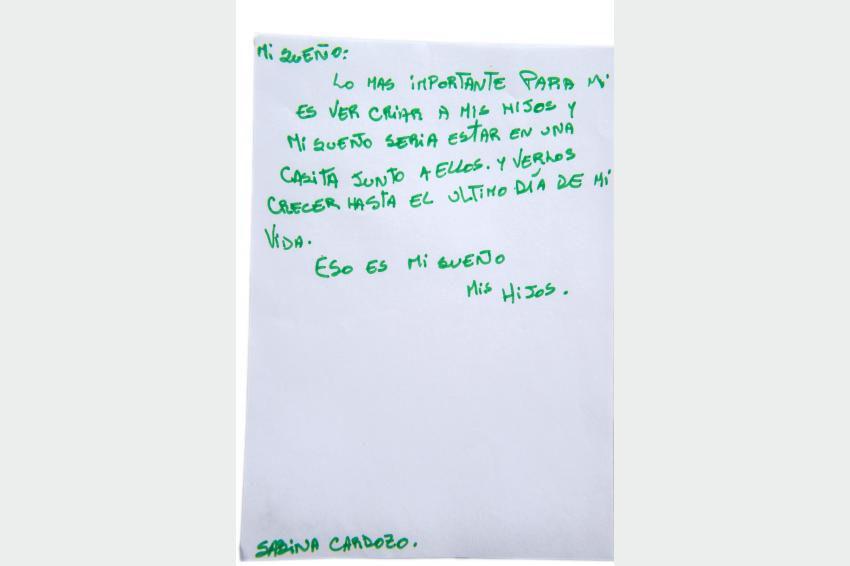 Mi SUEÑO:
LO MAS iMPORTANTE PARA Mi
ES VER CRiAR A MIS HIJOS Y
Mi SUEÑO SERiA ESTAR EN UNA
CASITA JUNTO A ELLOS. Y VERLOS
CRECER HASTA EL ULTIMO DÍA DE Mi
ViDA.
ESO ES Mi SUEÑO
MiS HiJOS.
SABiNA CARDOZO.